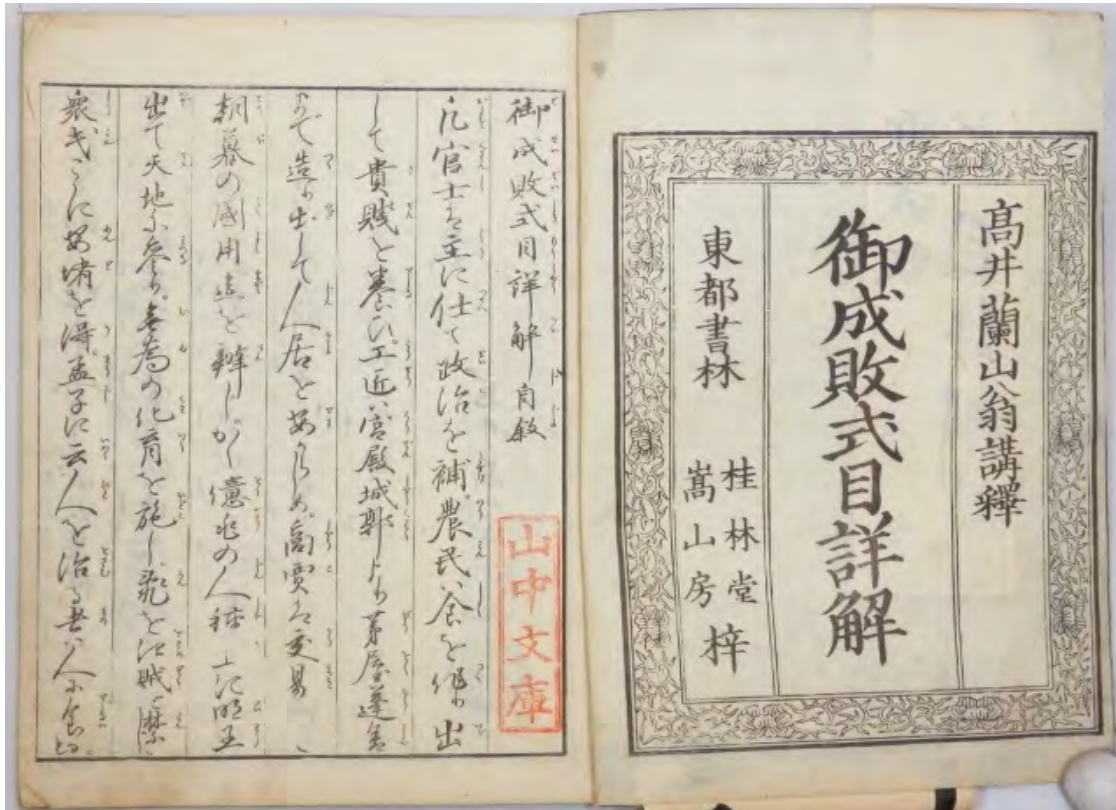 高井蘭山翁講釋
御成敗式目詳解
東都書林
桂林堂
嵩山房
梓
御成敗式目詳解自叙
凡官士は主に仕て政治を補。農民ハ食を作り出
して貴賤を養ひ。工匠ハ宮殿城郭より茅屋蓬舎
まで造り出して人居を安からしめ。商賈は交易
朝暮の國用を辨しかく億兆の人種上に明王
出て天地に参り。無為の化育を施し
衆民安堵を得。孟子に云人を治る者ハ人に
山中文庫